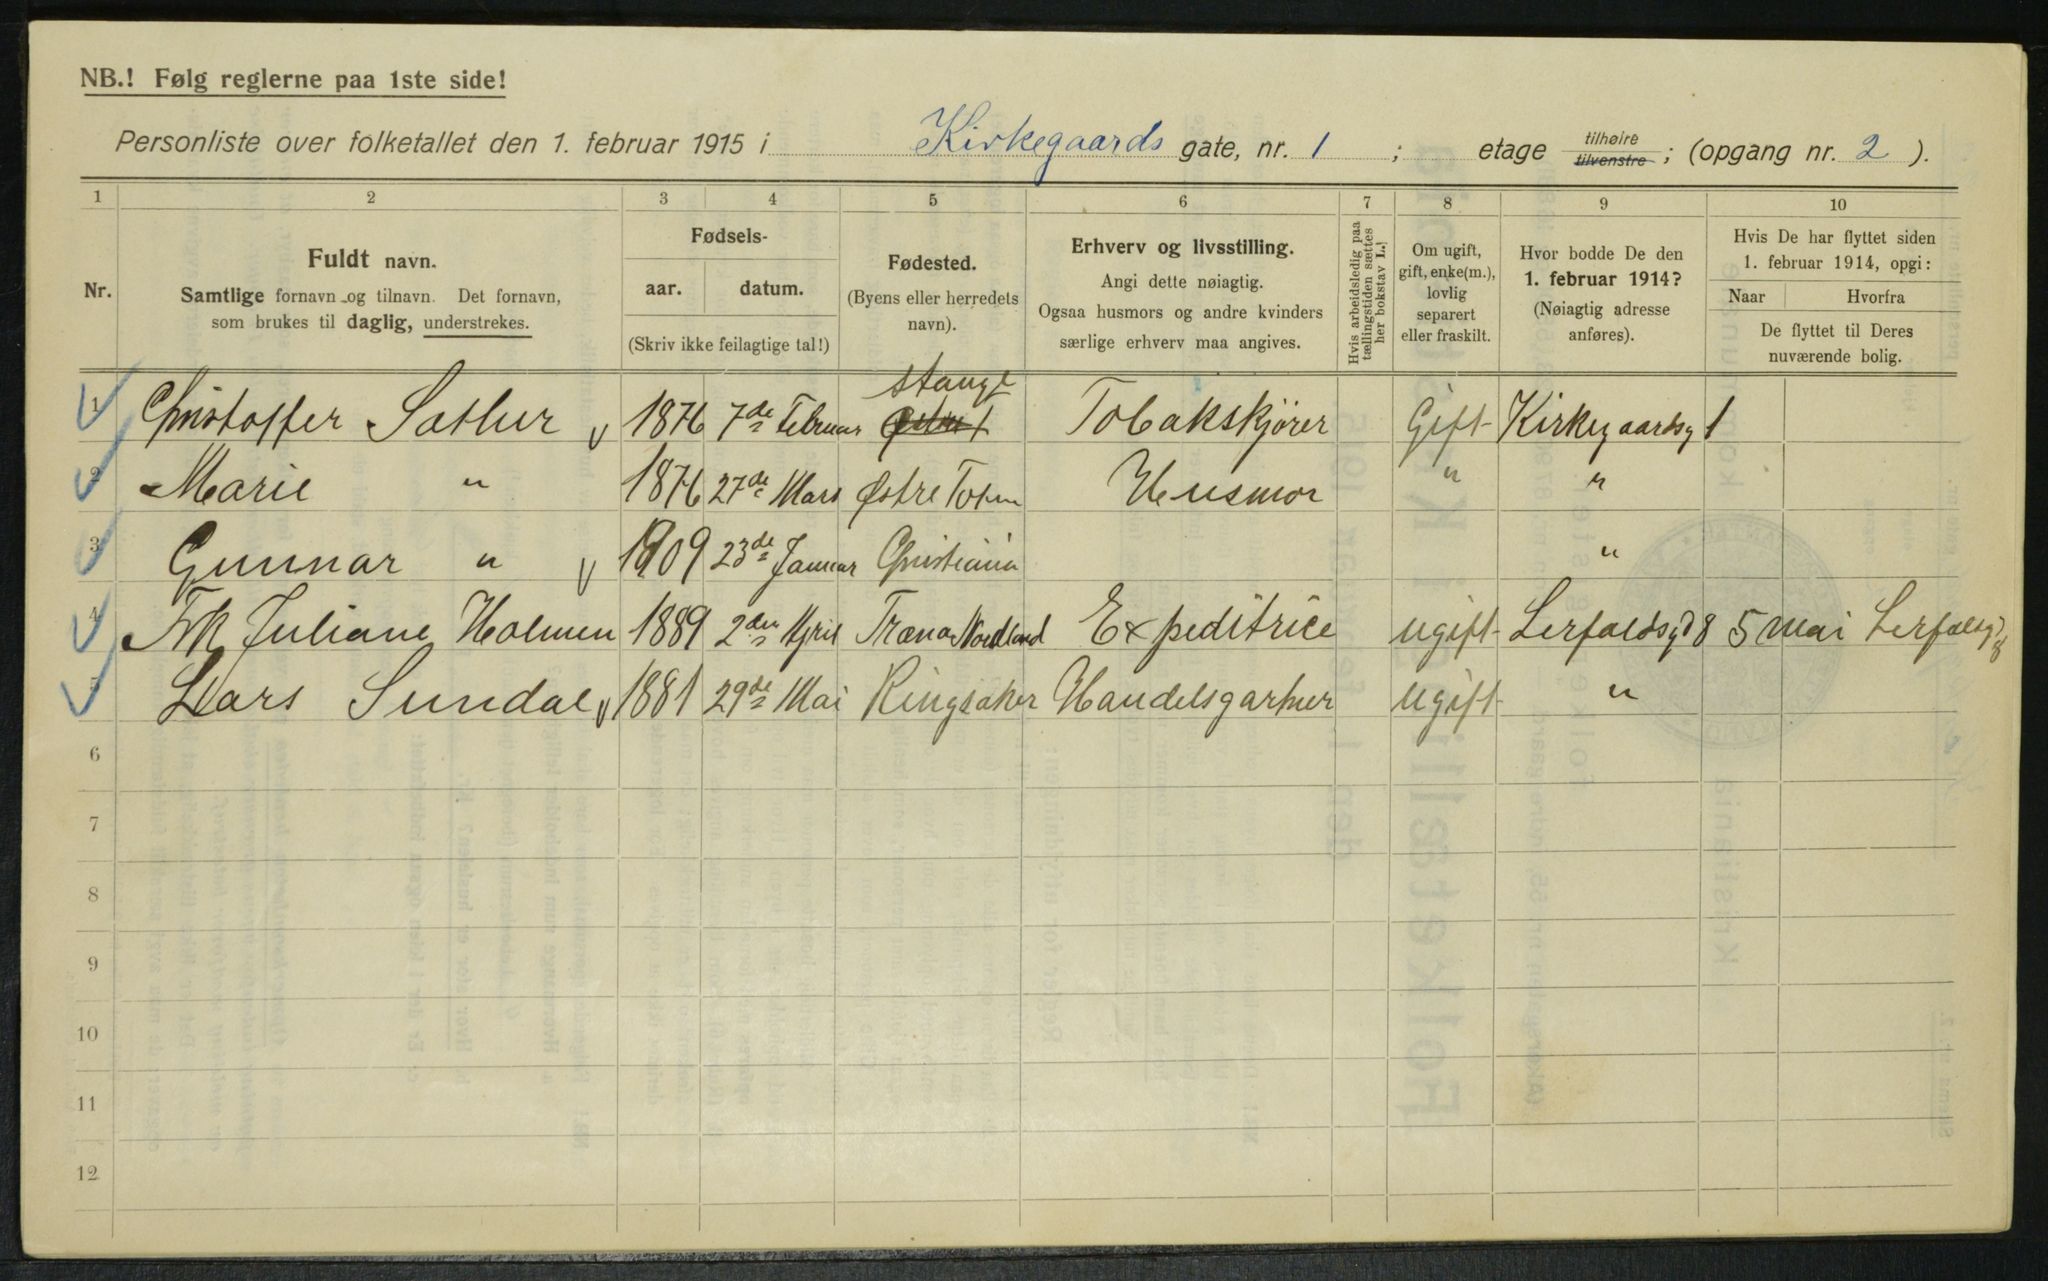 NB.! Følg reglerne paa 1ste side!
Personliste over folketallet den 1. februar 1915 i Kirkegaards gate, nr. 1 ; etage tilhøire tilvenstre ; (opgang nr. 2 ).
1 2 3 4 5 6 7 8 9 10
Nr.
Fuldt navn.
Samtlige fornavn og tilnavn. Det fornavn,
som brukes til daglig, understrekes.
Fødsels-
aar. datum.
(Skriv ikke feilagtige tal!)
Fødested.
(Byens eller herredets
navn).
Erhverv og livsstilling.
Angi dette nøiagtig.
Ogsaa husmors og andre kvinders
særlige erhverv maa angives.
Hvis arbeidsledig paa
tællingstiden sættes
her bokstav L.]
Om ugift,
gift, enke(m.),
lovlig
separert
eller fraskilt.
Hvor bodde De den
1. februar 1914?
(Nøiagtig adresse
anføres).
Hvis De har flyttet siden
1. februar 1914, opgi:
Naar Hvorfra
De flyttet til Deres
nuværende bolig.
Stange
1 Christoffer Sæther 1876 7de Februar Tobakskjører Gift Kirkegaardsg 1
2 Marie " 1876 27de Mars Østre Toten Husmor " "
3 Gunnar " 1909 23de Januar Christiania "
4 Frk Juliane Holmen 1889 2den April Træna Nordland Expeditrice ugift Lerfaldsg 8 5 mai Lerfaldsg 8
5 Lars Sundal 1881 29de Mai Ringsaker Handelsgartner ugift "
6
7
8
9
10
11
12